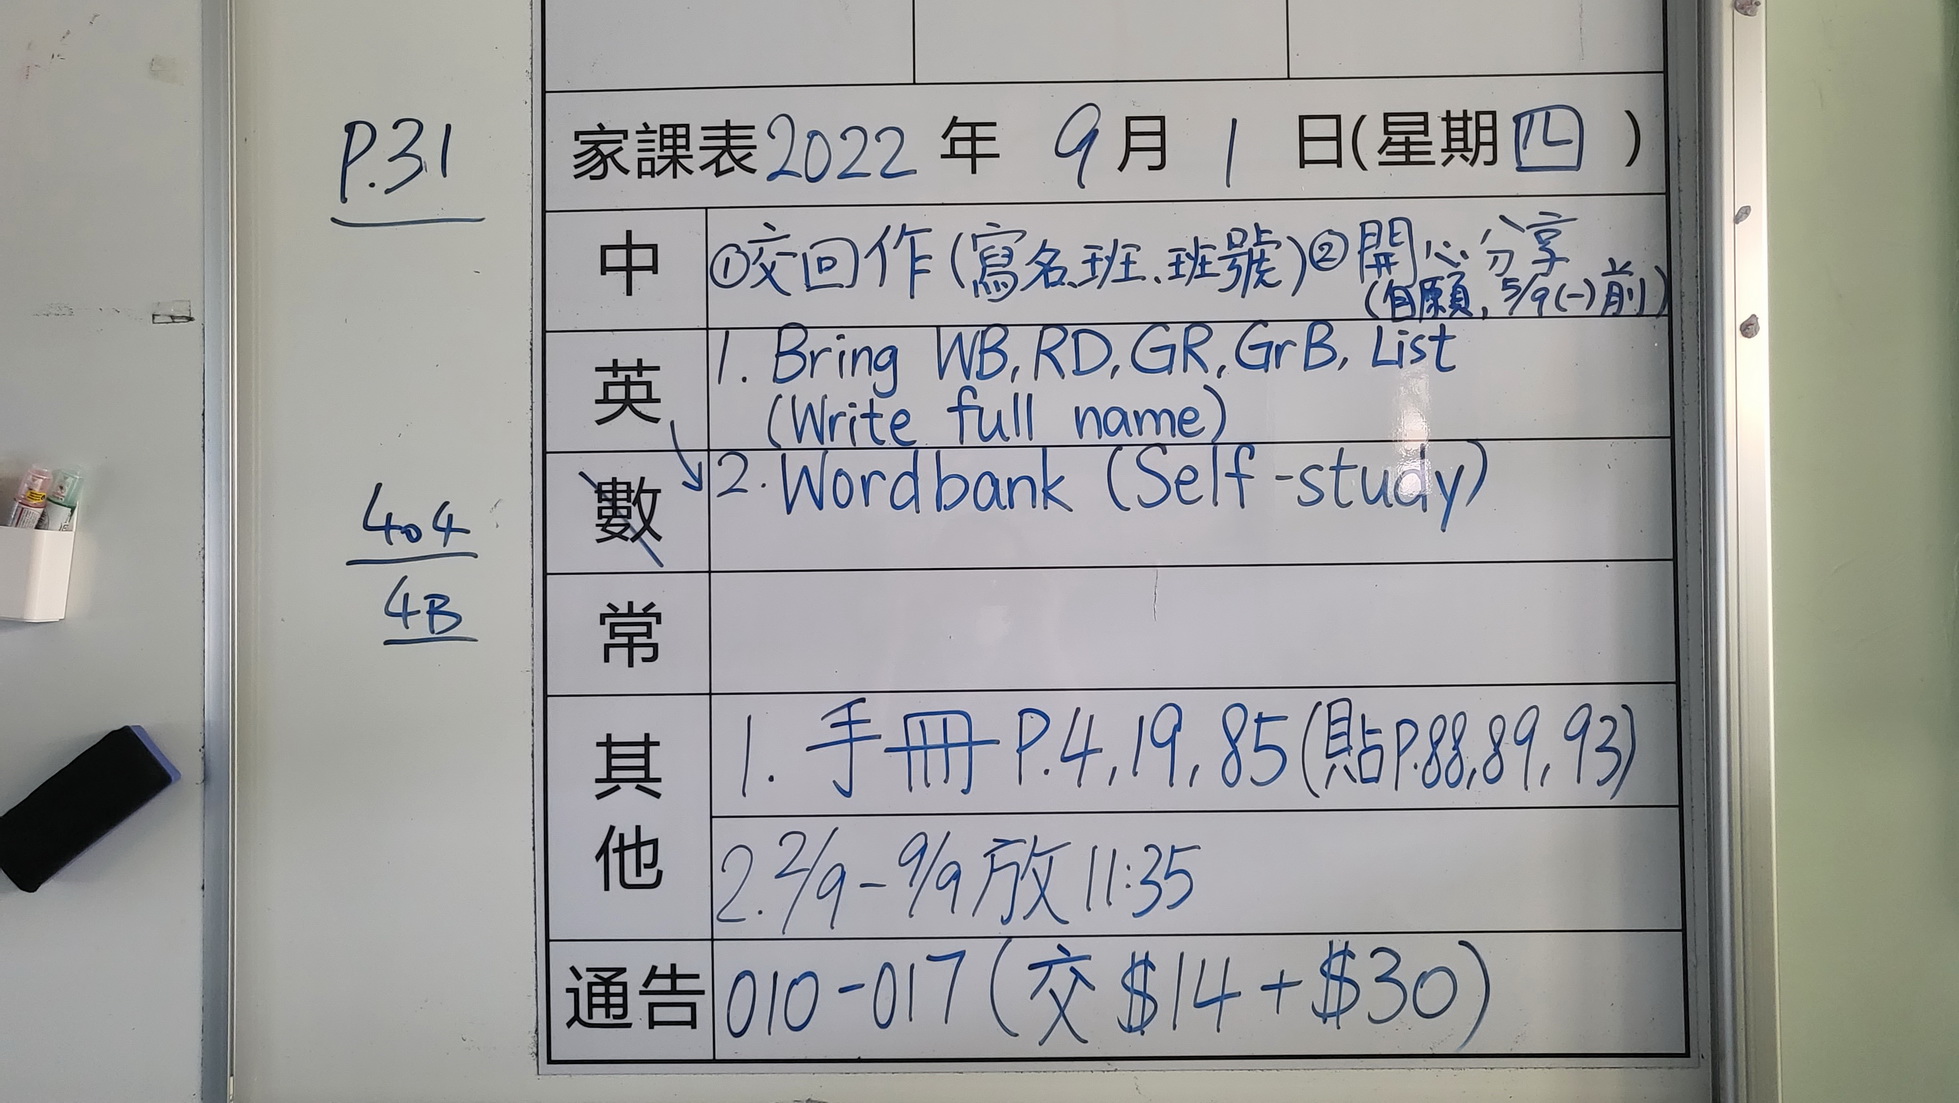 P.31
404
4B
家課表2022年 9月 1 日(星期四)
中 ①交回作(寫名、班、班號)②開心分享
(自願, 5/9(一)前)
英 1. Bring WB, RD, GR, GrB, List
(Write full name)
數 2. Wordbank (Self-study)
常
其他 1. 手冊 P.4, 19, 85(貼P.88,89,93)
2. 2/9-9/9 放 11:35
通告 010-017 (交 $14 + $30)